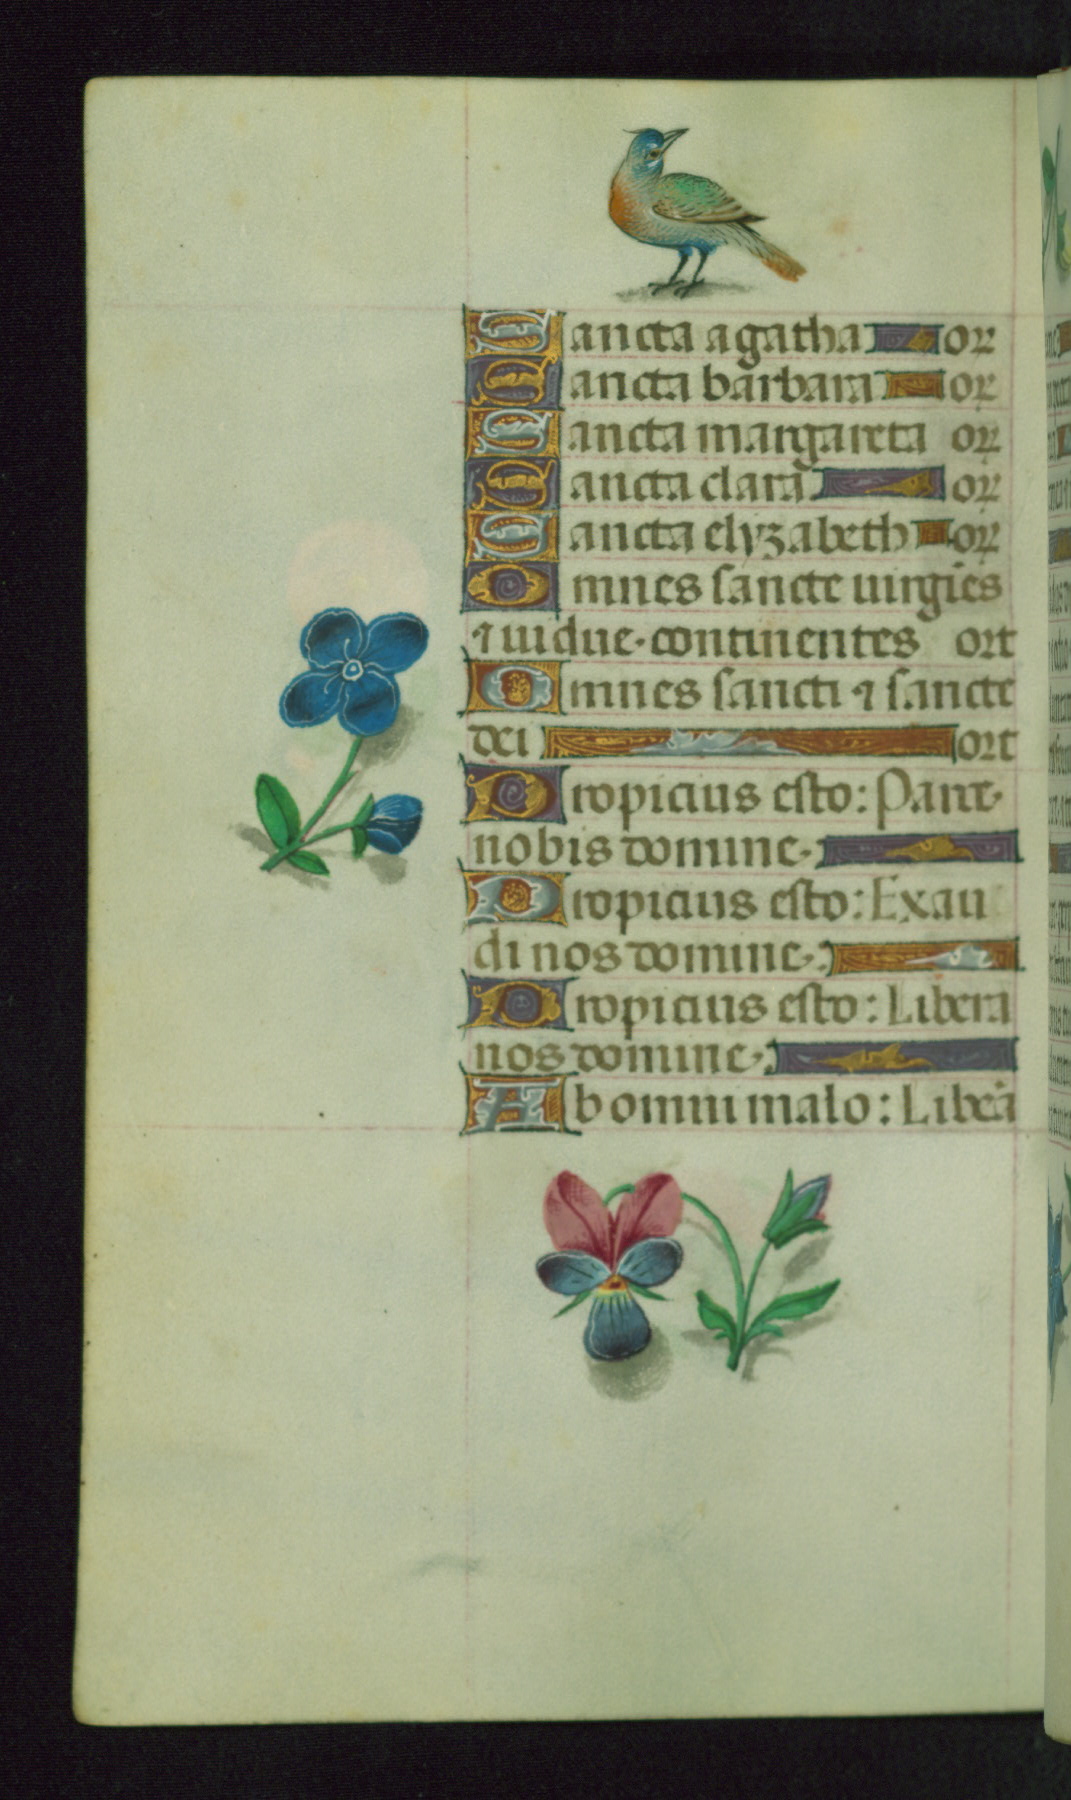 Sancta agatha or
Sancta barbara or
Sancta margareta or
Sancta clara or
Sancta elyzabeth or
Omnes sancte uirgīes
⁊ uidue. continentes ort
Omnes sancti ⁊ sancte
dei ort
Propicius esto: Parce
nobis domine.
Propicius esto: Exau
di nos domine.
Propicius esto: Libera
nos domine.
Ab omni malo: Libeā